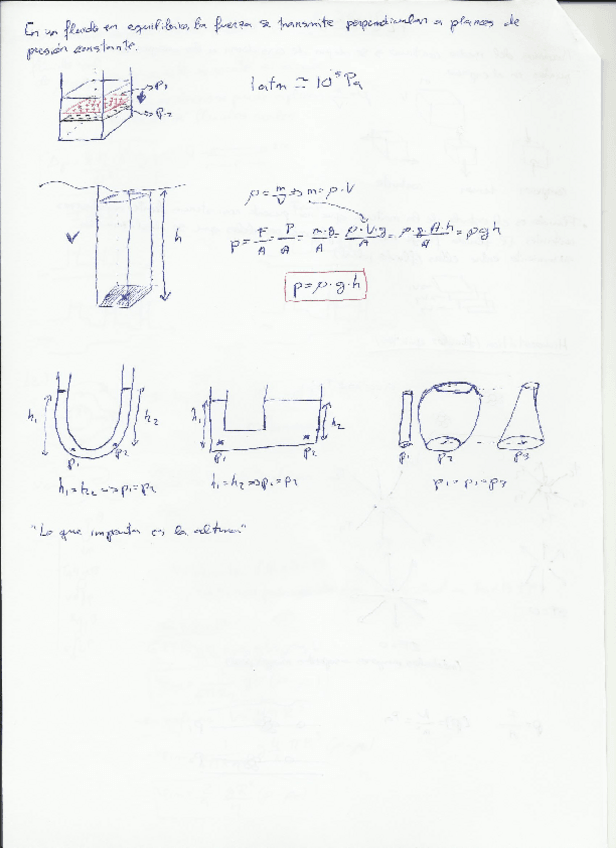 En un fluido en equilibrio, la fuerza se transmite perpendicular a planos de
presión constante.
p₁
p₂
1 atm ≃ 10⁵ Pa
h
ρ = m/V ⇒ m = ρ·V
p = F/A = P/A = m·g/A = ρ·V·g/A = ρ·g·A·h/A = ρgh
p = ρ·g·h
h₁ h₂ h₁ h₂
p₁ p₂ p₁ p₂ p₁ p₂ p₃
h₁ = h₂ ⇒ p₁ = p₂
h₁ = h₂ ⇒ p₁ = p₂
p₁ = p₁ = p₃
"Lo que importa es la altura"